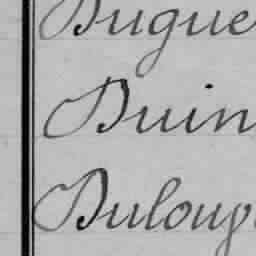 Dugue
Duin
Duloup